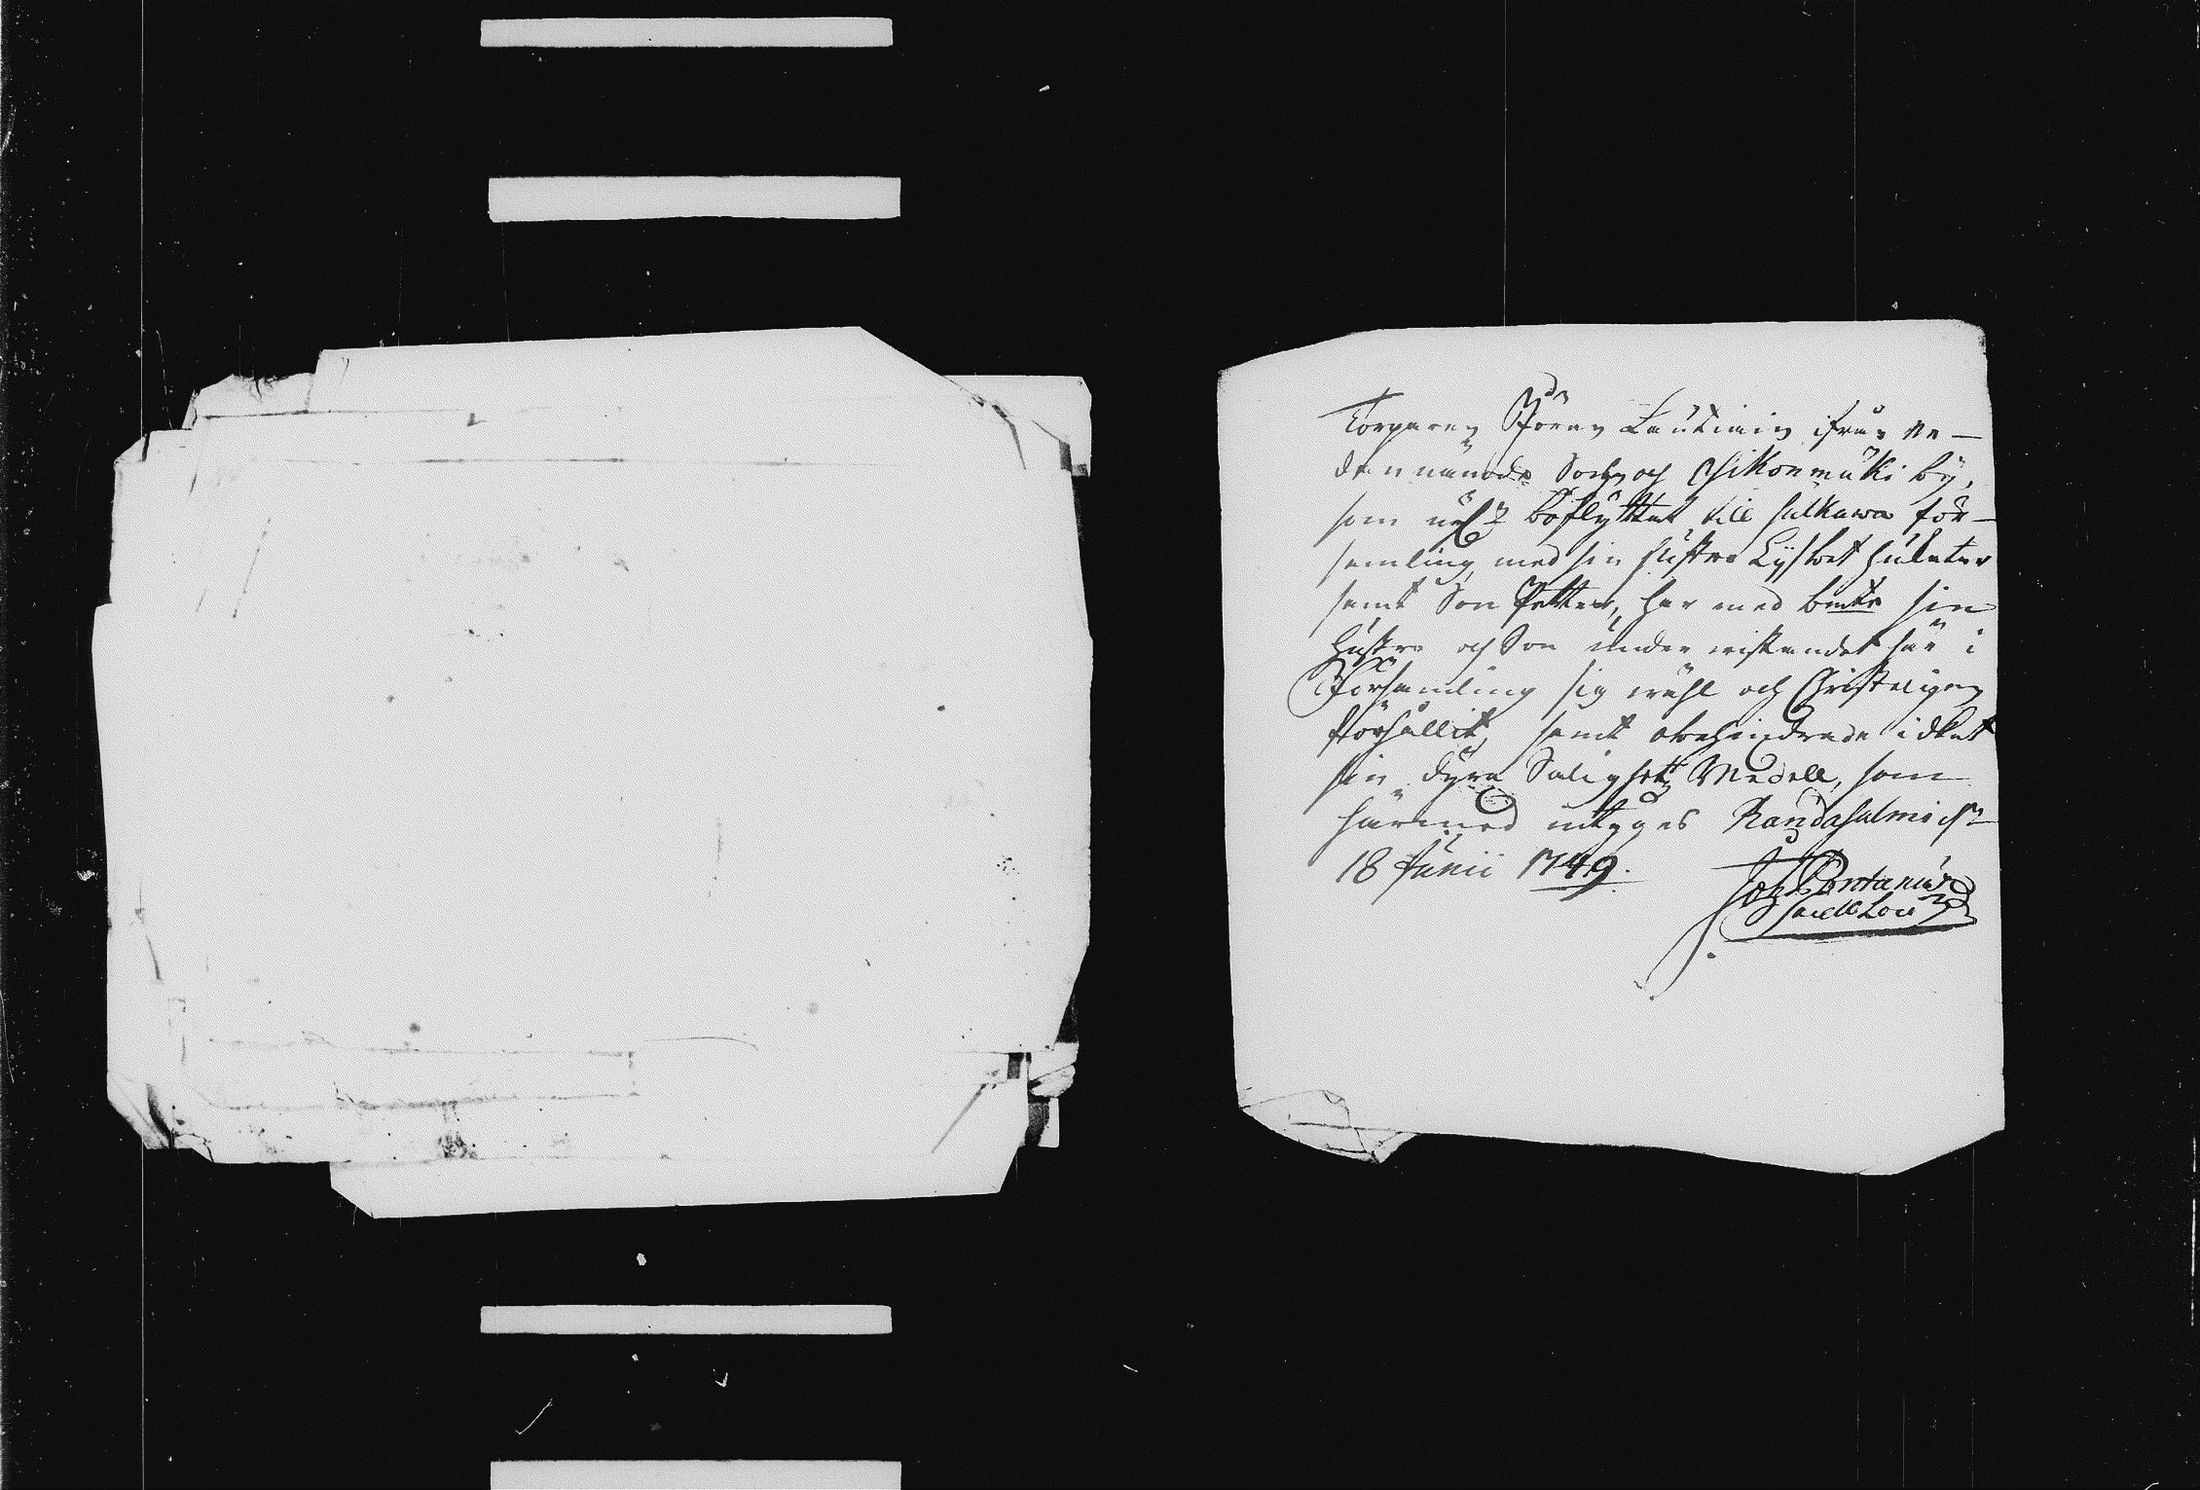 Torparen Jöran Lautiain ifrån ne-
dannämde Sochn och Osikonmäki by,
som nu boflyttat till Sulkawa för-
samling, med sin hustru Lijsbet Hulatar
samt Son Petter, har med bemte sin
Hustru och Son under wistandet här i
Församling sig wähl och Christeligen
förhållit, samt obehindrade idkat
sin dyra Salighetz Medell, som
härmed intyges Randasalmi
18 Junii 1749.
Joh Pontanus
Sacell Loci